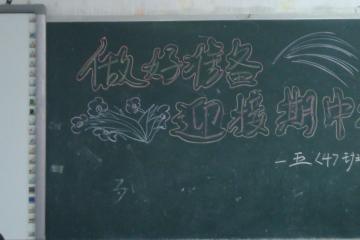 做好准备
迎接期中
一五〈4〉班